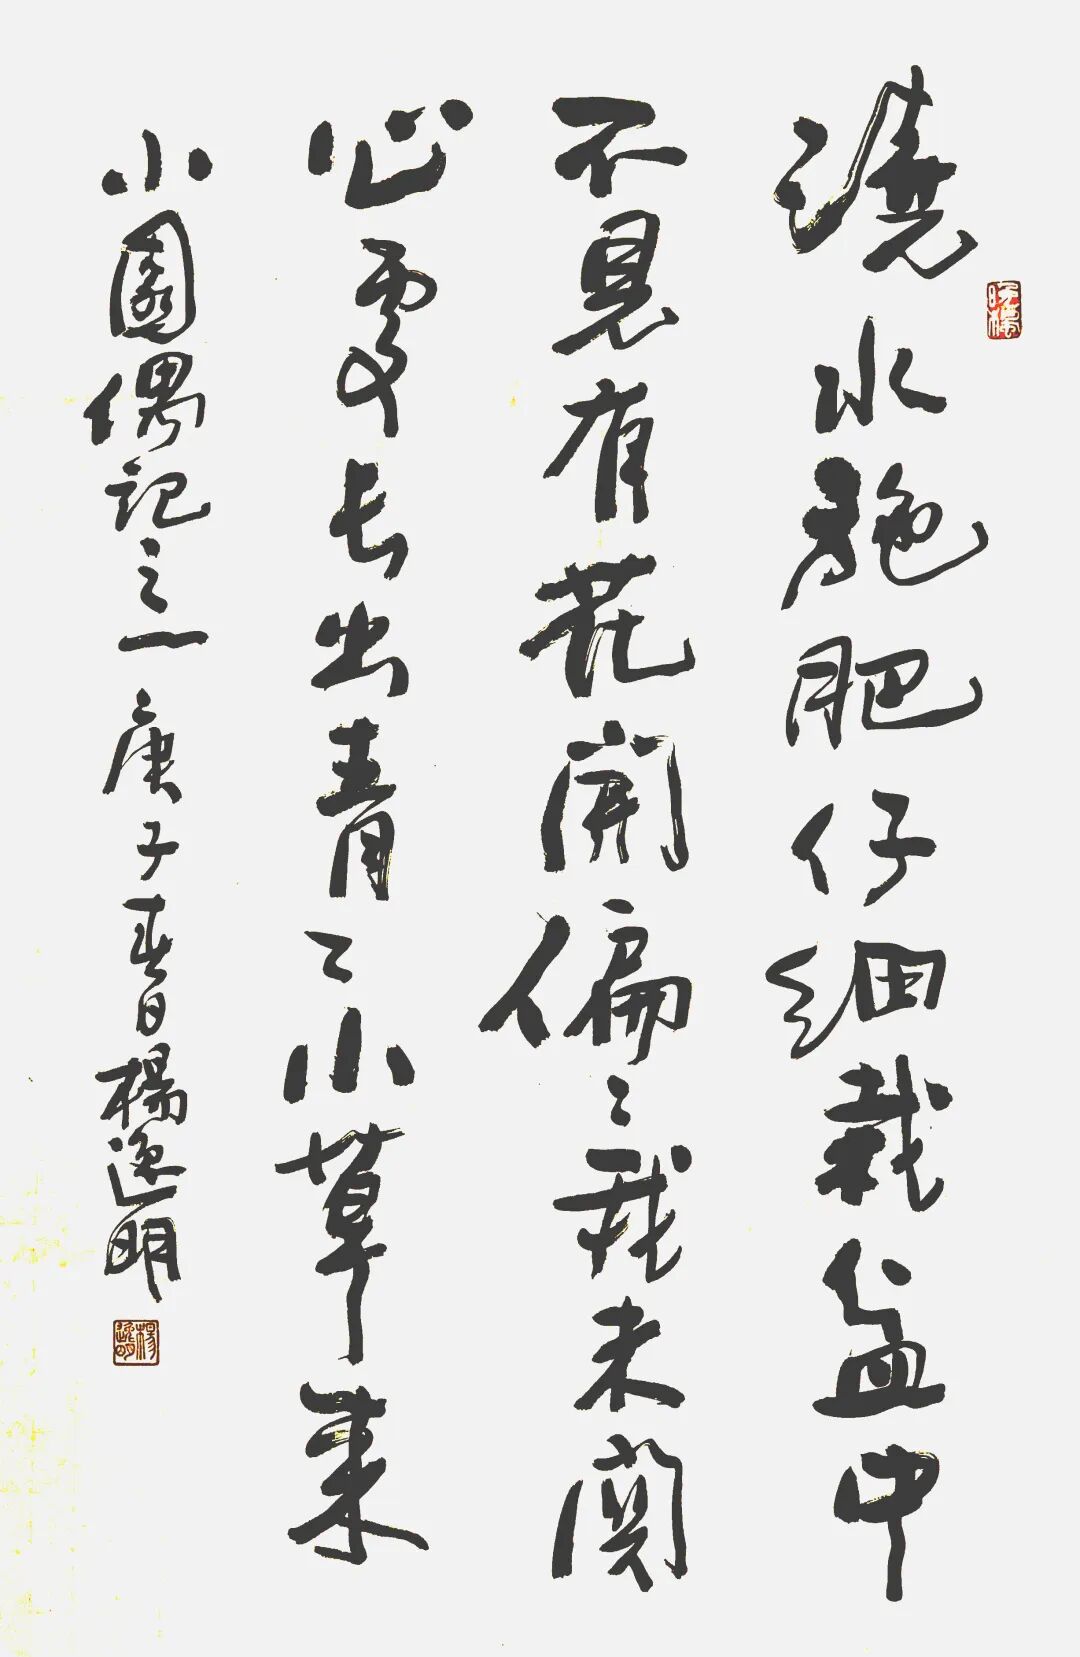 澆水施肥仔細栽盆中
不見有花開偏〻我未関
心處長出青〻小草來
小園偶記之一庚子春日楊逸明
晚楼
楊逸明